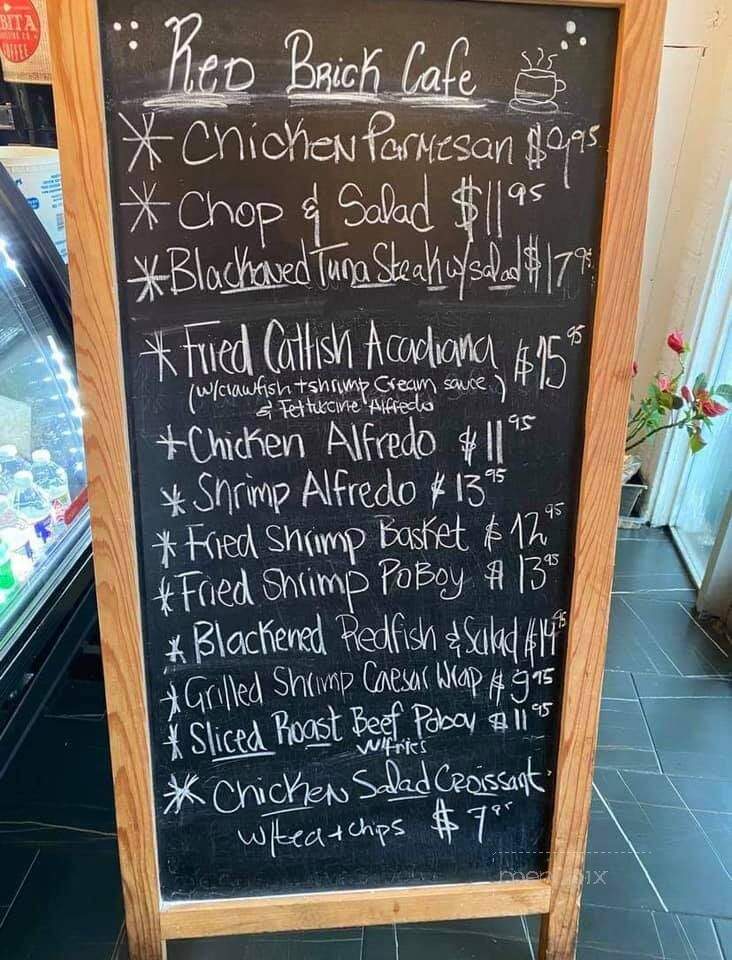 BITA
COFFEE
RED BRICK Cafe
* Chicken Parmesan $9.95
* Chop & Salad $11.95
* Blackened Tuna Steak w/salad $17.95
* Fried Catfish Acadiana $15.95
(w/crawfish + shrimp Cream sauce)
& Fettuccine Alfredo
* Chicken Alfredo $11.95
* Shrimp Alfredo $13.95
* Fried Shrimp Basket $12.95
* Fried Shrimp PoBoy $13.95
* Blackened Redfish & Salad $14.95
* Grilled Shrimp Caesar Wrap $9.95
* Sliced Roast Beef Poboy $11.95
w/fries
* Chicken Salad Croissant
w/tea + chips $7.95
menupix